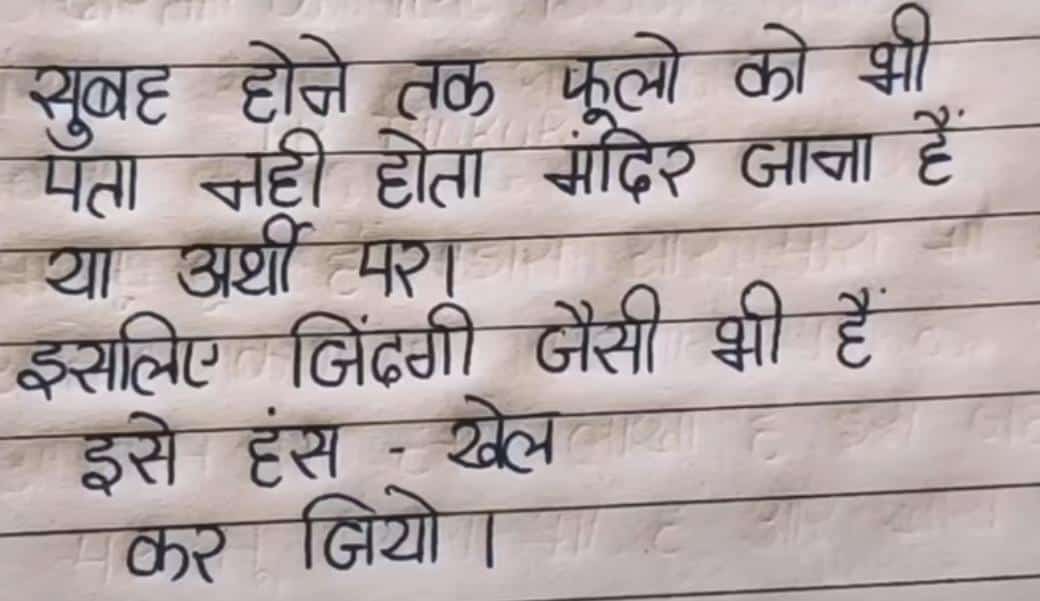 सुबह होने तक फूलो को भी
पता नही होता मंदिर जाना हैं
या अर्थी पर।
इसलिए जिंदगी जैसी भी हैं
इसे हंस - खेल
कर जियो।